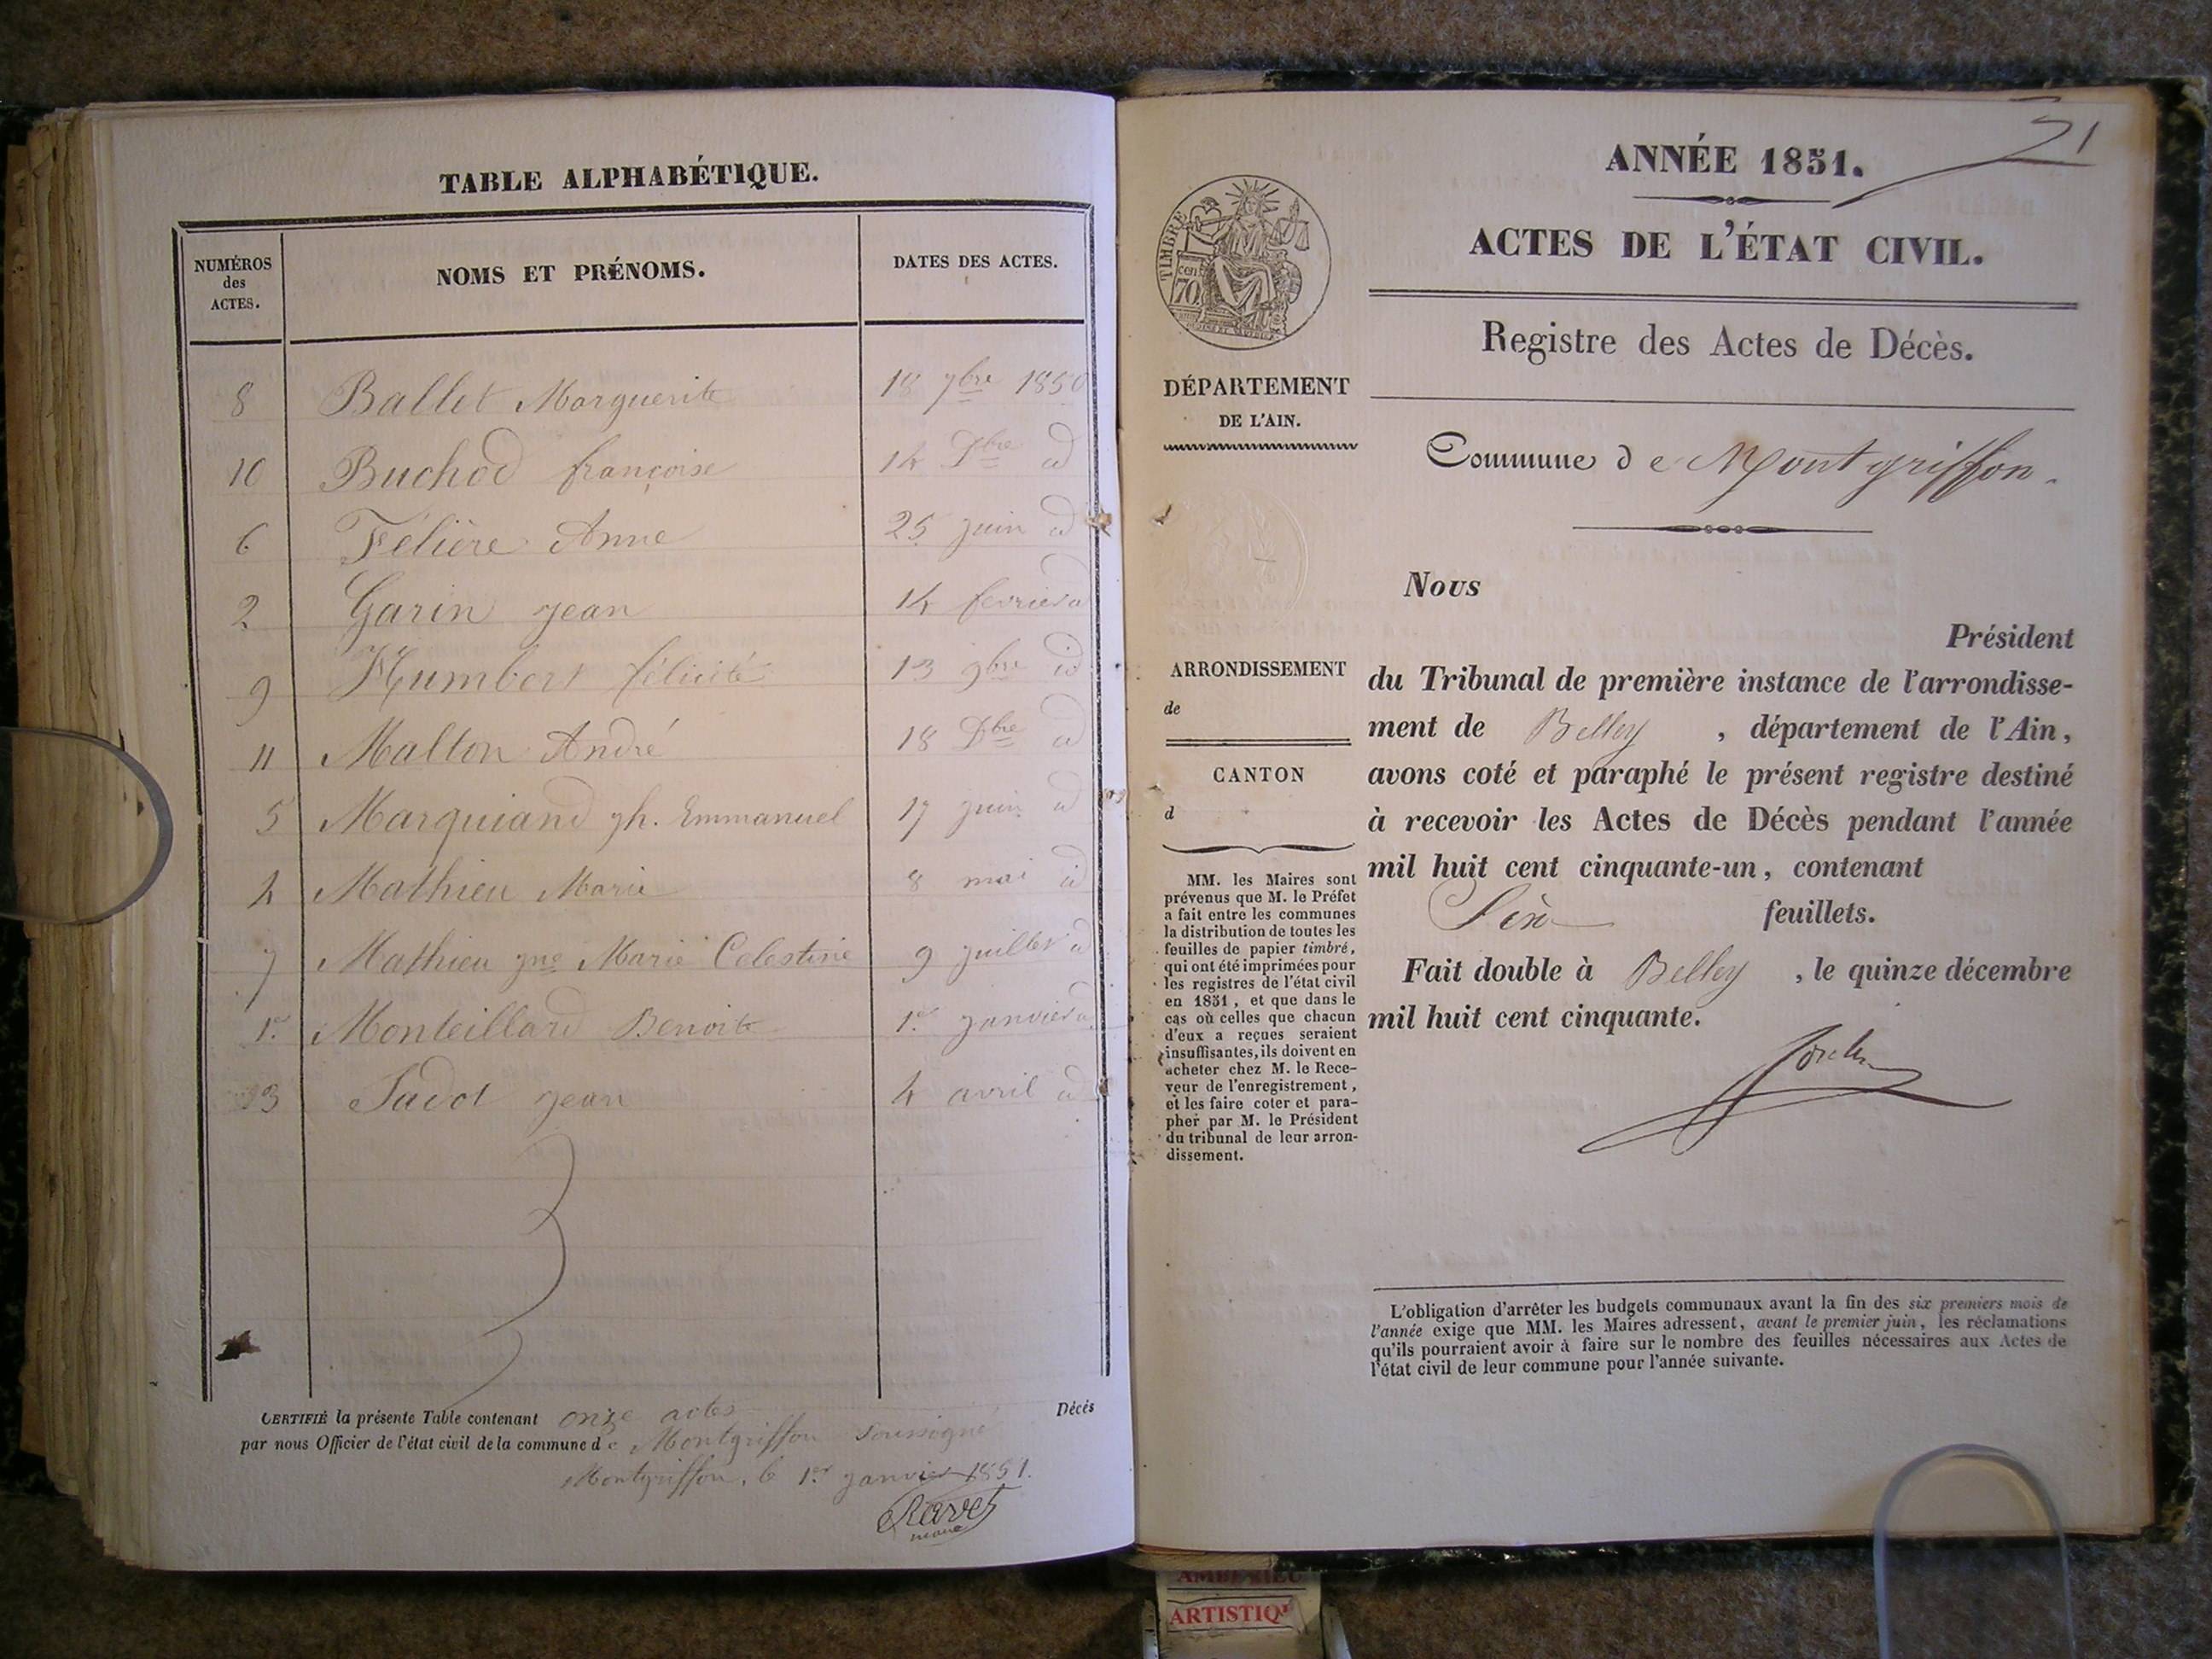 TABLE ALPHABÉTIQUE.
NUMÉROS des ACTES.
NOMS ET PRÉNOMS.
DATES DES ACTES.
8 Ballet Marguerite 18 7bre 1850
10 Buchod françoise 14 Dbre id
6 Félière Anne 25 juin id
2 Garin jean 14 fevrier id
9 Humbert félicité 13 9bre id
11 Malton André 18 Dbre id
5 Marquiand jh. Emmanuel 17 juin id
4 Mathieu Marie 8 mai id
7 Mathieu jne Marie Celestine 9 juillet id
1er Monteillard Benoit 1er janvier id
3 Sadot jean 4 avril id
CERTIFIÉ la présente Table contenant onze actes Décès
par nous Officier de l'état civil de la commune de Montgriffon soussigné
Montgriffon, le 1er janvier 1851.
Ravet
maire
21
ANNÉE 1851.
ACTES DE L'ÉTAT CIVIL.
Registre des Actes de Décès.
TIMBRE
70
DÉPARTEMENT
DE L'AIN.
Commune de Montgriffon.
ARRONDISSEMENT
de
CANTON
d
MM. les Maires sont
prévenus que M. le Préfet
a fait entre les communes
la distribution de toutes les
feuilles de papier timbré,
qui ont été imprimées pour
les registres de l'état civil
en 1851, et que dans le
cas où celles que chacun
d'eux a reçues seraient
insuffisantes, ils doivent en
acheter chez M. le Rece-
veur de l'enregistrement,
et les faire coter et para-
pher par M. le Président
du tribunal de leur arron-
dissement.
Nous
Président
du Tribunal de première instance de l'arrondisse-
ment de Belley, département de l'Ain,
avons coté et paraphé le présent registre destiné
à recevoir les Actes de Décès pendant l'année
mil huit cent cinquante-un, contenant
Six feuillets.
Fait double à Belley, le quinze décembre
mil huit cent cinquante.
L'obligation d'arrêter les budgets communaux avant la fin des six premiers mois de
l'année exige que MM. les Maires adressent, avant le premier juin, les réclamations
qu'ils pourraient avoir à faire sur le nombre des feuilles nécessaires aux Actes de
l'état civil de leur commune pour l'année suivante.
ARTISTIQU